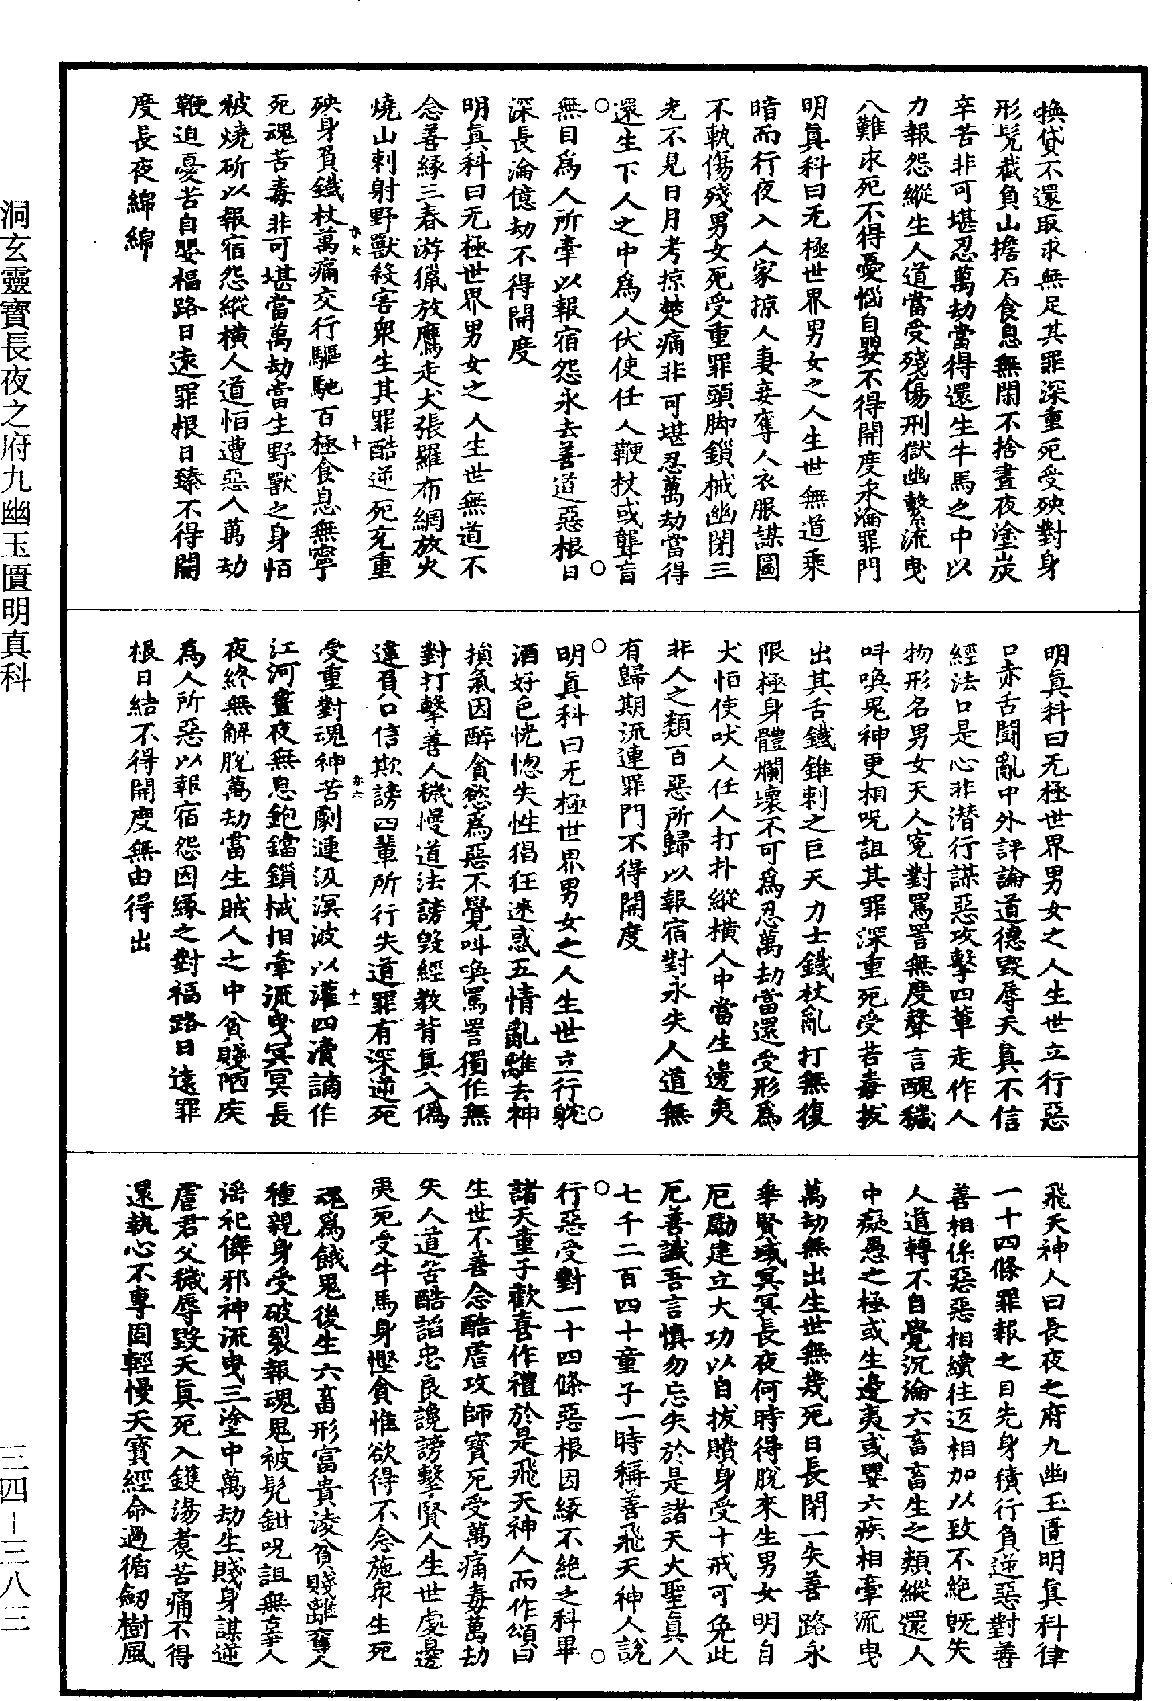 換貸不還取求無足其罪深重死受殃對身
形髡截負山擔石食息無閑不捨晝夜塗炭
辛苦非可堪忍萬劫當得還生牛馬之中以
力報怨縱生人道當受殘傷刑獄幽繫流曳
八難求死不得憂惱自嬰不得開度永淪罪門
明真科曰无極世界男女之人生世無道乘
暗而行夜入人家掠人妻妾奪人衣服謀圖
不軌傷殘男女死受重罪頭脚鎖械幽閉三
光不見日月考掠楚痛非可堪忍萬劫當得
還生下人之中為人伏使任人鞭杖或聾盲
無目為人所牽以報宿怨永去善道惡根日
深長淪億劫不得開度
明真科曰无極世界男女之人生世無道不
念善緣三春游獵放鷹走犬張羅布網放火
燒山刺射野獸殺害衆生其罪酷逆死充重
殃身負鐵杖萬痛交行驅馳百極食息無寧
死魂苦毒非可堪當萬劫當生野獸之身恒
被燒斫以報宿怨縱橫人道恒遭惡人萬劫
鞭迫憂苦自嬰福路日遠罪根日臻不得開
度長夜綿綿
明真科曰无極世界男女之人生世立行惡
口赤舌鬪亂中外評論道德毀辱天真不信
經法口是心非潛行謀惡攻擊四輩走作人
物形名男女天人寃對罵詈無度聲言醜穢
呌喚鬼神更相呪詛其罪深重死受苦毒拔
出其舌鐵錐刺之巨天力士鐵杖亂打無復
限極身體爛壞不可為忍萬劫當還受形為
犬怕使吠人任人打扑縱橫人中當生邊夷
非人之類百惡所歸以報宿對永失人道無
有歸期流連罪門不得開度
明真科曰无極世界男女之人生世立行躭
酒好色恍惚失性猖狂迷惑五情亂離去神
損氣因醉貪慾為惡不覺呌喚罵詈獨作無
對打擊善人穢慢道法謗毀經教背真入偽
違負口信欺謗四輩所行失道罪有深逆死
受重對魂神苦劇漣汲溟波以灌四瀆謫作
江河晝夜無息鉋鐺鎖械相牽流曳冥冥長
夜終無解脫萬劫當生賊人之中貧賤陋疾
為人所惡以報宿怨因緣之對福路日遠罪
根日結不得開度無由得出
飛天神人曰長夜之府九幽玉匱明真科律
一十四條罪報之目先身積行負逆惡對善
善相係惡惡相續往返相加以致不絕旣失
人道轉不自覺沉淪六畜畜生之類縱還人
中癡愚之極或生邊夷或嬰六疾相牽流曳
萬劫無出生世無幾死日長閉一失善路永
乖賢域冥冥長夜何時得脫來生男女明自
厄勵建立大功以自拔贖身受十戒可免此
厄善識吾言慎勿忘失於是諸天大聖真人
七千二百四十童子一時稱善飛天神人說
行惡受對一十四條惡根因緣不絕之科畢
諸天童子歡喜作禮於是飛天神人而作頌曰
生世不善念酷虐攻師寶死受萬痛毒萬劫
失人道苦酷謟忠良讒謗擊賢人生世處邊
夷死受牛馬身慳貪惟欲得不念施衆生死
魂為餓鬼後生六畜形富貴淩貧賤離奪人
種親身受破裂報魂鬼被髡鉗呪詛無辜人
谣祀儛邪神流曳三塗中萬劫生賤身謀逆
虐君父穢辱毀天真死入鑊湯煑苦痛不得
還執心不專固輕慢天寶經命過循劒樹風
亦六
十
亦六
十一
洞玄靈寶長夜之府九幽玉匱明真科
三四－三八三